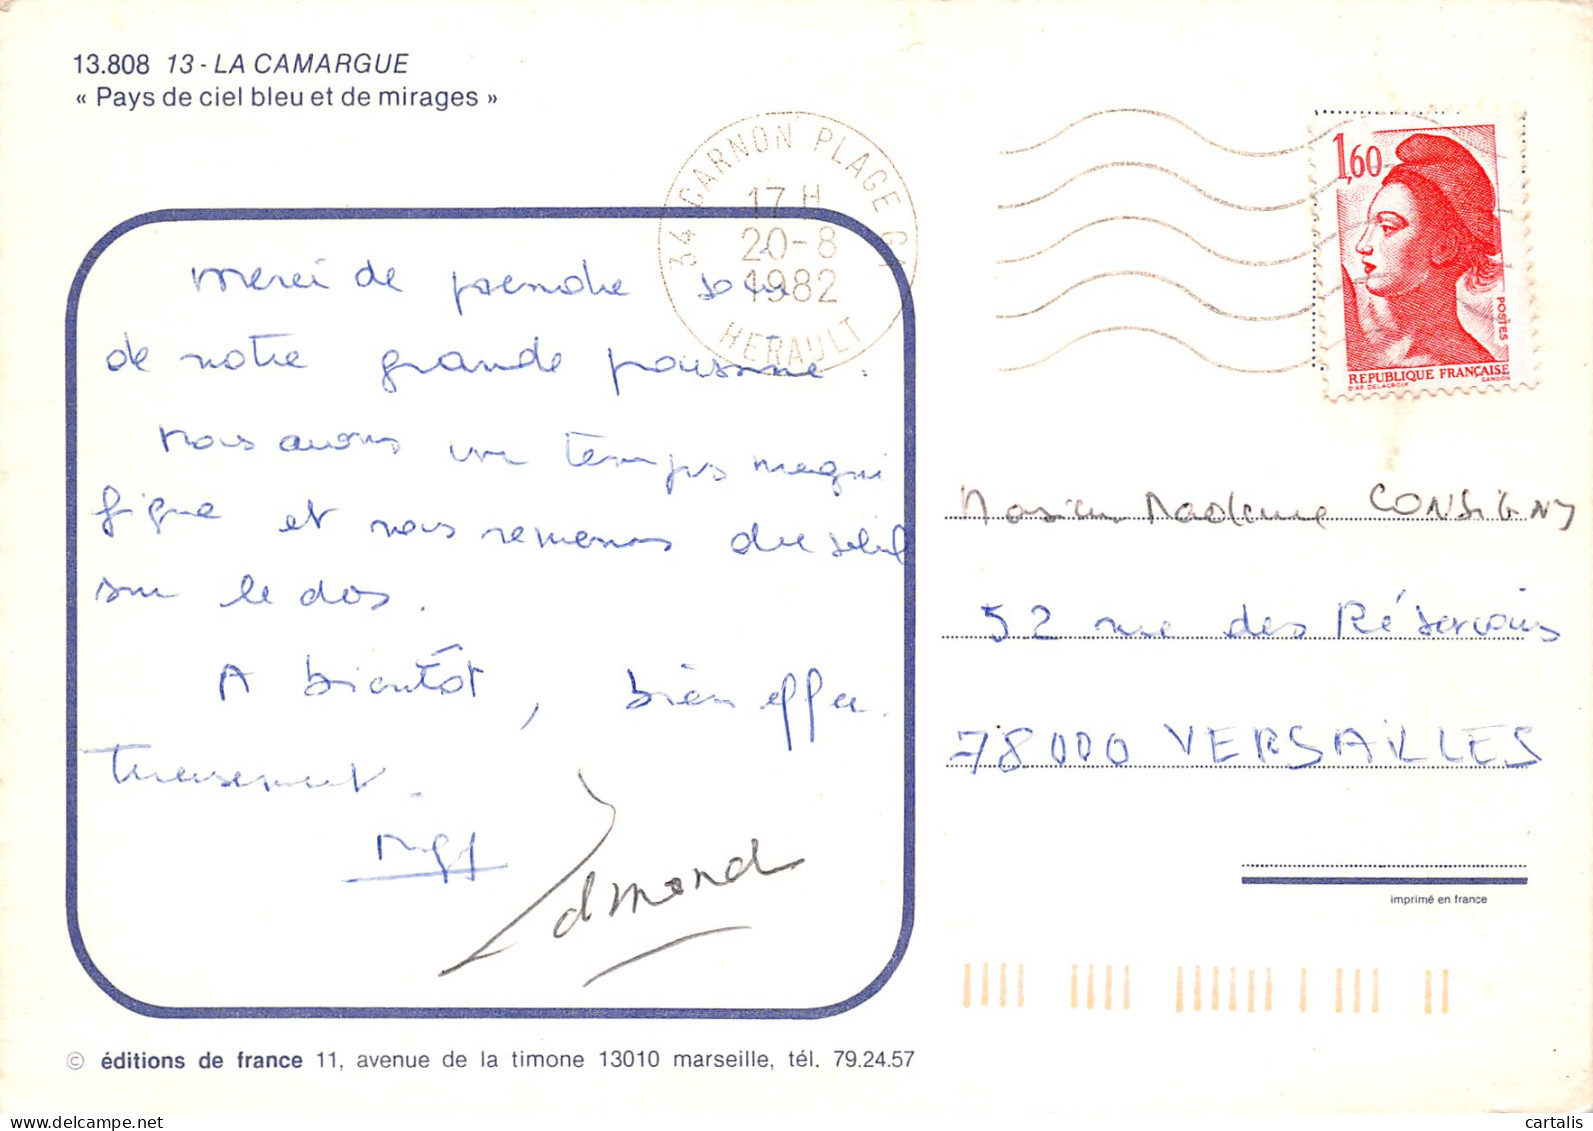 13.808 13 - LA CAMARGUE
« Pays de ciel bleu et de mirages »
34 CARNON PLAGE G1
17 H
20-8
1982
HERAULT
1,60
POSTES
REPUBLIQUE FRANÇAISE
D'AP. DELACROIX GANDON
merci de prendre soin
de notre grande poissonne.
Nous avons un temps magni
fique et nous ramenons du soleil
sur le dos.
A bientôt, bien affec
tueusement.
Edmond
Monsieur Madame CONSIGNY
52 rue des Réservoirs
78000 VERSAILLES
imprimé en france
© éditions de france 11, avenue de la timone 13010 marseille, tél. 79.24.57
cartalis.com